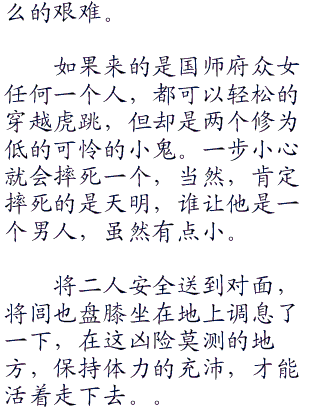 么的艰难。
如果来的是国师府众女
任何一个人，都可以轻松的
穿越虎跳，但却是两个修为
低的可怜的小鬼。一步小心
就会摔死一个，当然，肯定
摔死的是天明，谁让他是一
个男人，虽然有点小。
将二人安全送到对面，
将闾也盘膝坐在地上调息了
一下，在这凶险莫测的地
方，保持体力的充沛，才能
活着走下去。。